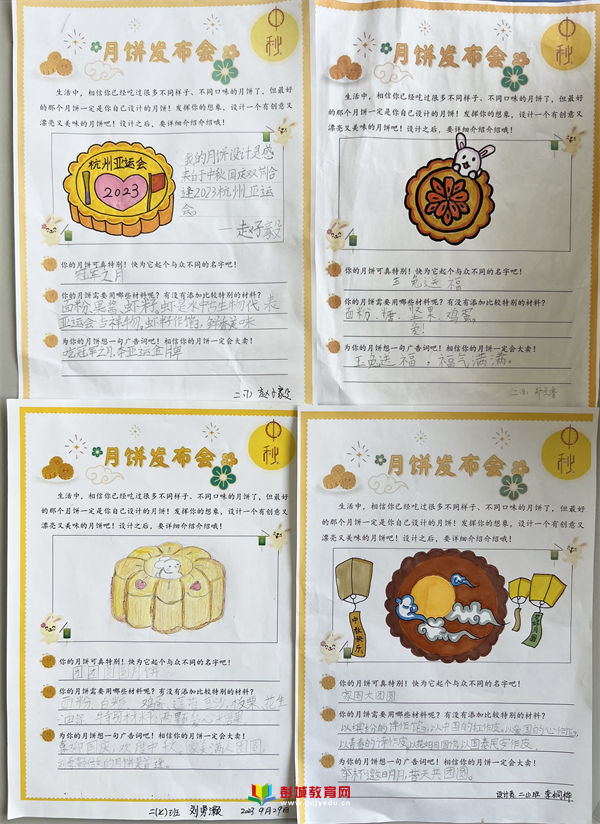 中秋
月饼发布会
生活中，相信你已经吃过很多不同样子、不同口味的月饼了，但最好
的那个月饼一定是你自己设计的月饼！发挥你的想象，设计一个有创意又
漂亮又美味的月饼吧！设计之后，要详细介绍介绍哦！
杭州亚运会
2023
我的月饼设计灵感
来自于中秋国庆双节合
逢2023杭州亚运
会。
你的月饼可真特别！快为它起个与众不同的名字吧！
冠军之月
你的月饼需要用哪些材料呢？有没有添加比较特别的材料？
面粉、果酱、虾籽、虾是水中与生物代表
亚运会吉祥物，虾籽作馅，鲜香美味
为你的月饼想一句广告词吧！相信你的月饼一定会大卖！
吃冠军之月，夺亚运金牌
中秋
月饼发布会
生活中，相信你已经吃过很多不同样子、不同口味的月饼了，但最好
的那个月饼一定是你自己设计的月饼！发挥你的想象，设计一个有创意又
漂亮又美味的月饼吧！设计之后，要详细介绍介绍哦！
你的月饼可真特别！快为它起个与众不同的名字吧！
玉兔送福
你的月饼需要用哪些材料呢？有没有添加比较特别的材料？
面粉、糖、坚果、鸡蛋。
爱！
为你的月饼想一句广告词吧！相信你的月饼一定会大卖！
玉兔送福，福气满满。
中秋
月饼发布会
生活中，相信你已经吃过很多不同样子、不同口味的月饼了，但最好
的那个月饼一定是你自己设计的月饼！发挥你的想象，设计一个有创意又
漂亮又美味的月饼吧！设计之后，要详细介绍介绍哦！
你的月饼可真特别！快为它起个与众不同的名字吧！
团团圆圆月饼
你的月饼需要用哪些材料呢？有没有添加比较特别的材料？
面粉、白糖、鸡蛋、莲蓉、豆沙、板栗、花生
为你的月饼想一句广告词吧！相信你的月饼一定会大卖！
喜迎国庆，欢度中秋，家美满人团圆，
二(七)班 刘勇灏 2023 9月29日
中秋
月饼发布会
生活中，相信你已经吃过很多不同样子、不同口味的月饼了，但最好
的那个月饼一定是你自己设计的月饼！发挥你的想象，设计一个有创意又
漂亮又美味的月饼吧！设计之后，要详细介绍介绍哦！
中秋快乐
你的月饼可真特别！快为它起个与众不同的名字吧！
家国大团圆
你的月饼需要用哪些材料呢？有没有添加比较特别的材料？
为你的月饼想一句广告词吧！相信你的月饼一定会大卖！
举杯邀明月，普天共团圆。
彭城教育网